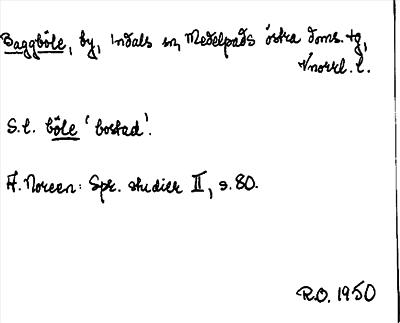 Baggböle, by, Indals sn, Medelpads östra doms. tg,
Vnorrl. l.
S.l. böle 'bostad'.
A. Noreen: Spr. studier II, s. 80.
R.O. 1950